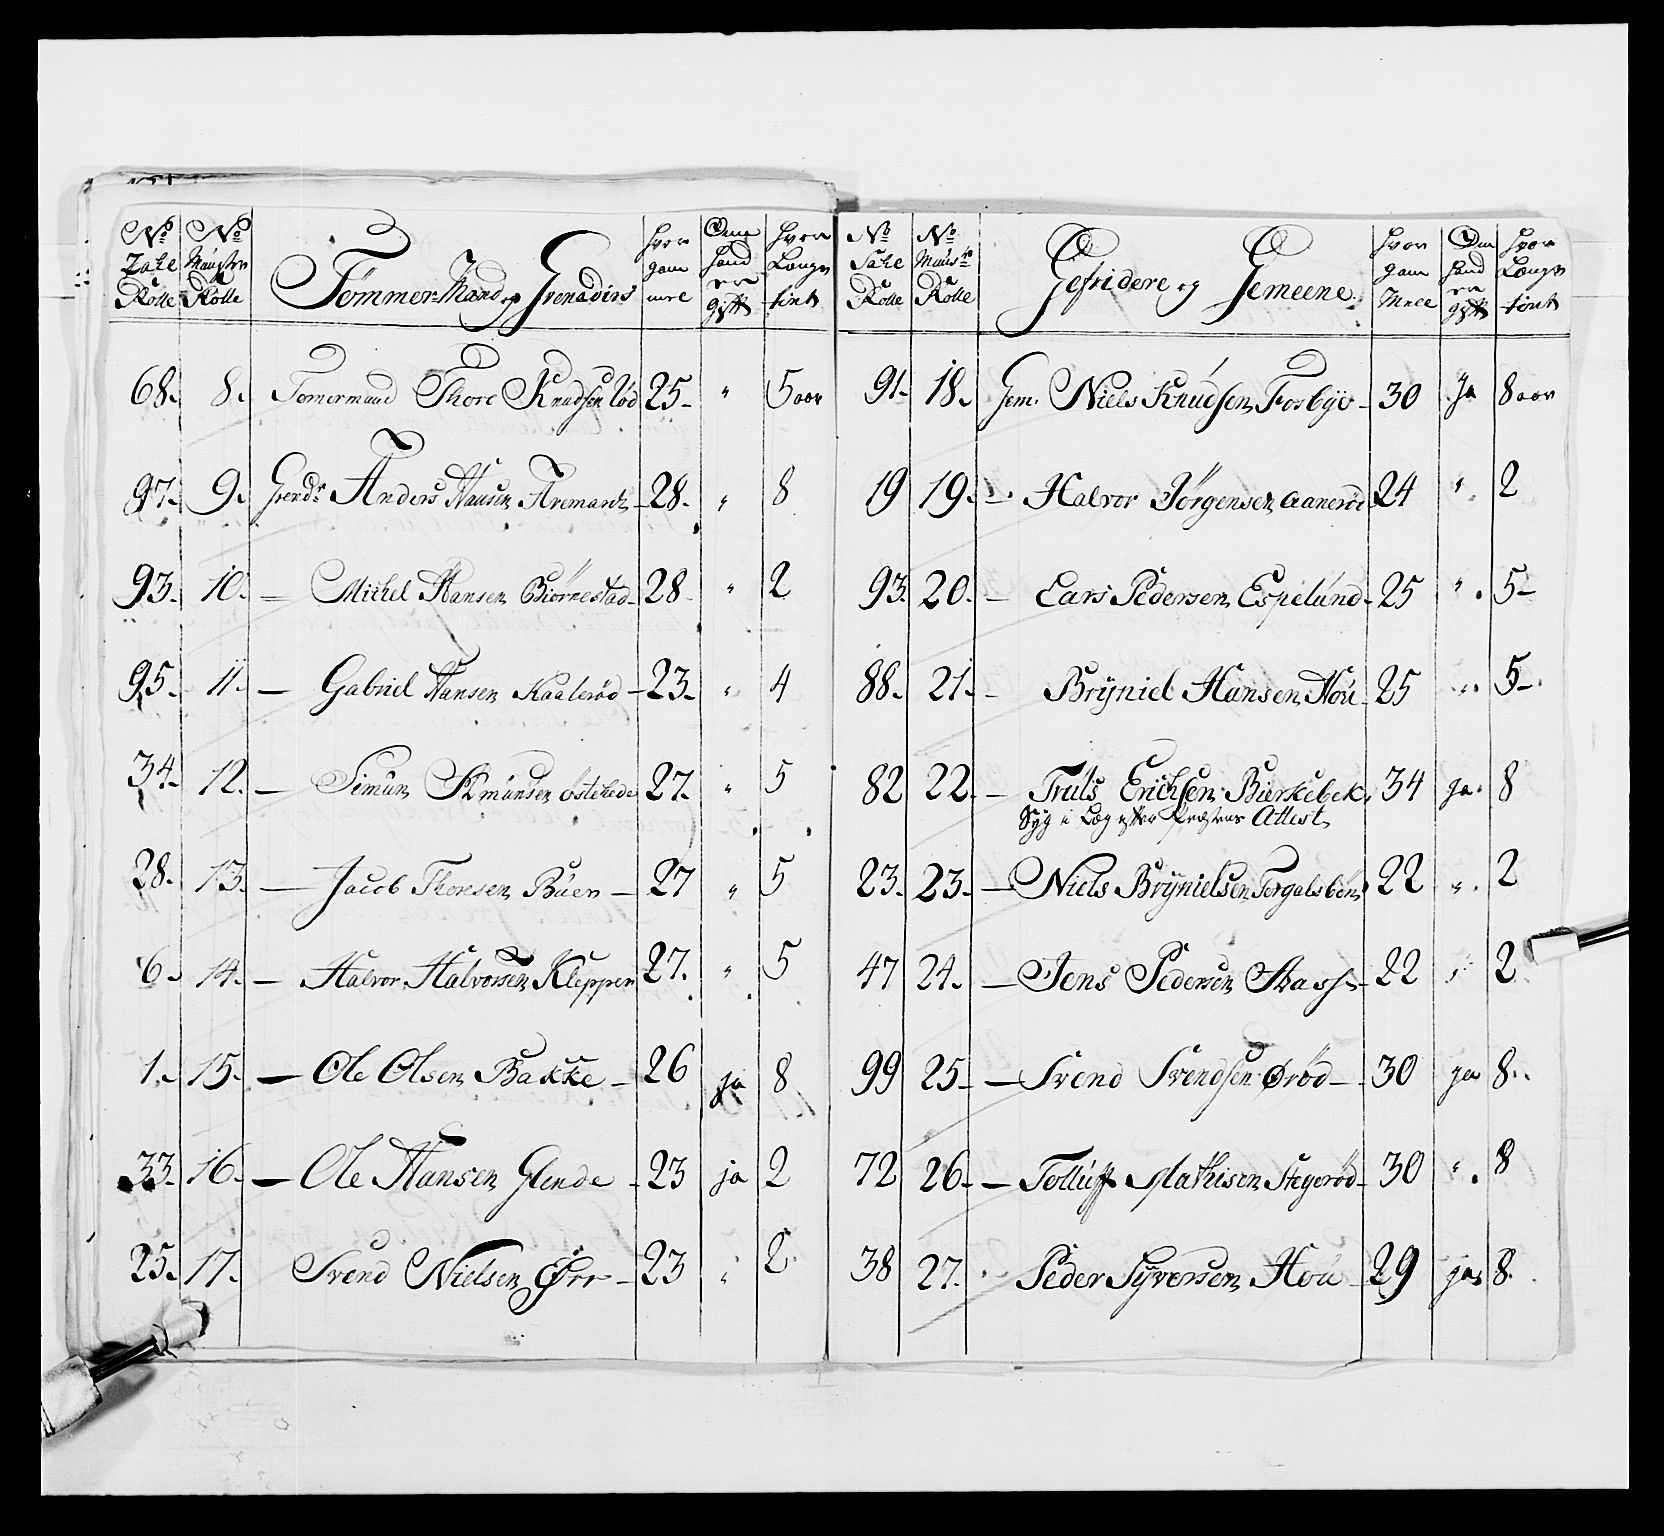 No Tahl Rolle | No Münster Rolle | Tømmer-Mænd og Grenadirs | hvor gam mel | Om hand er gift | hvor Længe tient
68. 8. Tømermand Thore Knudsen lød 25 " 5 aar
97. 9. Grendr Anders Hansen Aremarck 28. " 8
93. 10. — Michel Hansen Biørnestad 28 " 2
95. 11. — Gabriel Hansen Kaalerød 23. " 4
34. 12. — Simun Amundsen Østehede 27. " 5
28. 13. — Jacob Thoresen Buer 27 " 5
6. 14. — Halvor Halvorsen Kleppen 27. " 5
1. 15. — Ole Olsen Bakke 26 ja 8
33. 16. — Ole Hansen Glende 23 ja 2
25. 17. Svend Nielsen Ørr 23 " 2
No Tahl Rolle | No Münstr Rolle | Gefridere og Gemeene | hvor gam mell | Om hand er gift | hvor Længe tient
91. 18. Gem. Niels Knudsen Fosbye 30 ja 8 aar
19 19. — Halvor Jørgensen Aanerød 24 " 2
93. 20. — Lars Pedersen Espelund 25 " 5
88. 21. — Bryniel Hansen Hou 25 " 5
82 22. — Truls Erichsen Bierkebek 34 ja 8
Syg i Læg efter Præstens Attest
23. 23. — Niels Brynielsen Torgalsbøn 22 " 2
47 24. — Jens Pedersen Aas 22 " 2
99 25. — Svend Svendsen Ørød 30 ja 8
72 26. — Tolluf Mathisen Stegerød 30 " 8
38 27. Peder Syversen Hou 29 ja 8